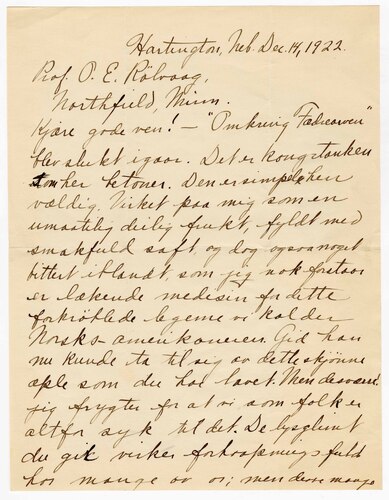 Hartington, Neb. Dec. 14, 1922.
Prof. O. E. Rölvaag,
Northfield, Minn.
Kjære gode ven! – "Omkring Fædrearven"
blev slukt igaar. Det er kongstanken
som her betoner. Den er simpelthen
vældig. Virket paa mig som en
umaatelig deilig frukt, fyldt med
smakfuld saft og dog ogsaa noget
bittert iblandt, som jeg nok forstaar
er lækende medesin for dette
forkrøblede legeme vi kalder
Norsk-amerikaneren. Gid han
nu kunde ta til sig av dette skjønne
æple som du har lavet. Men desværre
jeg frygter for at vi som folk er
altfor syk til det. De lysglimt
du gir virker forhaapningsfuld
hos mange av os; men disse mange